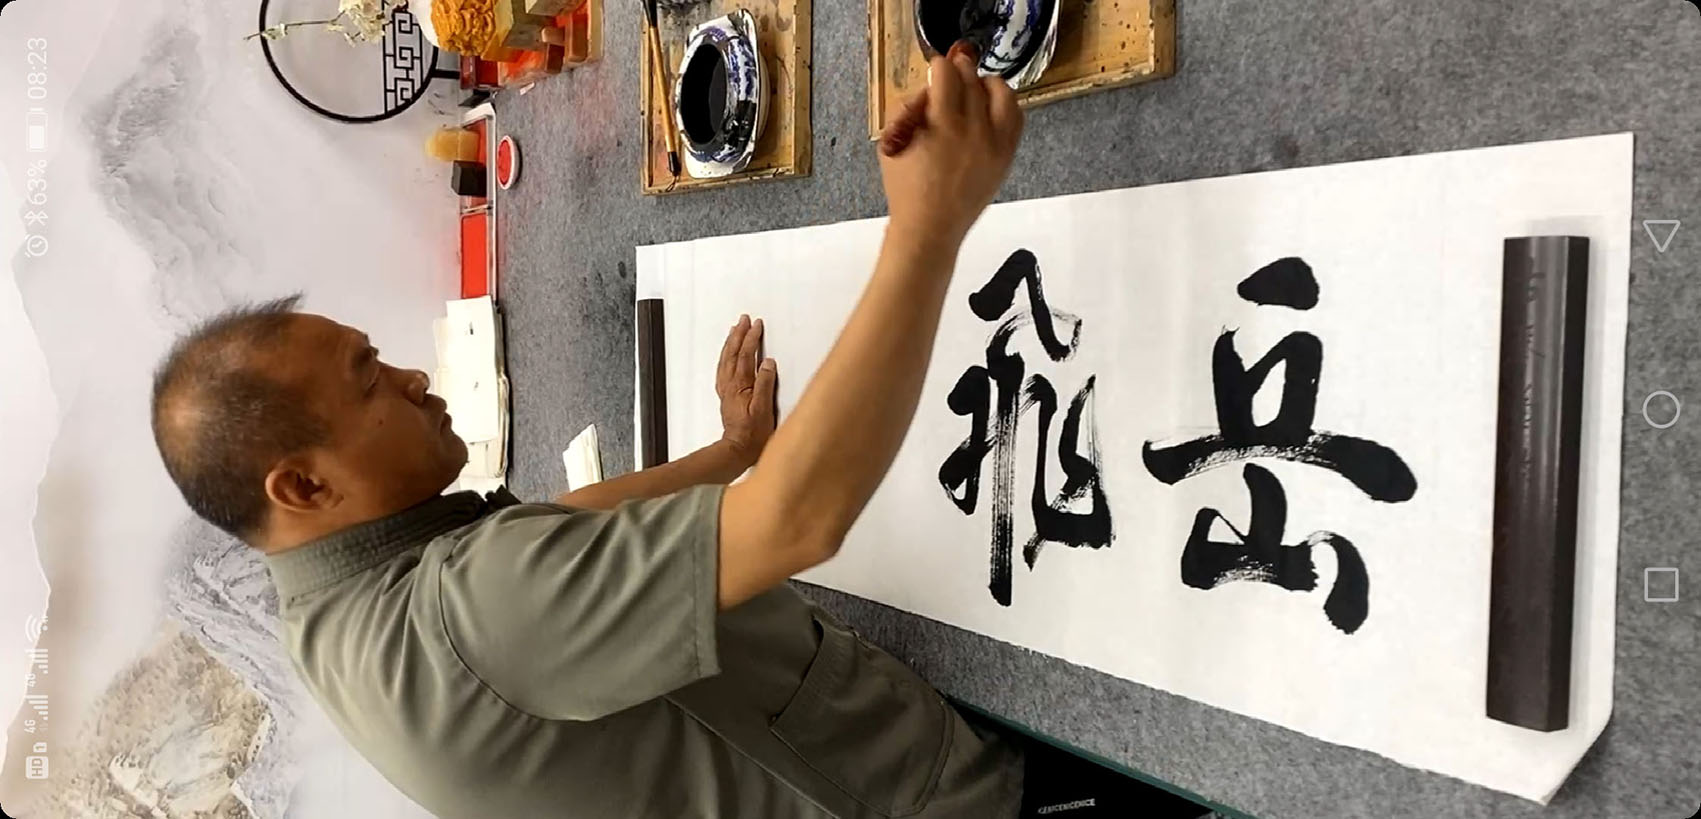 岳飛
HD 4G 4G
63% 08:23